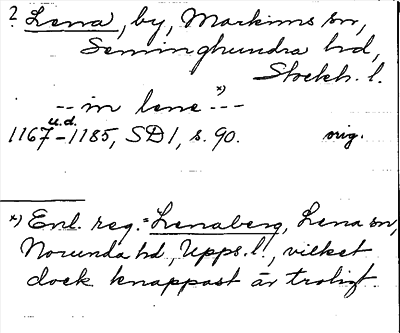 ? Lena, by, Markims sn,
Seminghundra hd,
Stockh. l.
-- in lene *) --
1167 u.d. -1185, SD1, s. 90. orig.
*) Enl. reg. = Lenaberg, Lena sn,
Norunda hd, Upps. l., vilket
dock knappast är troligt.